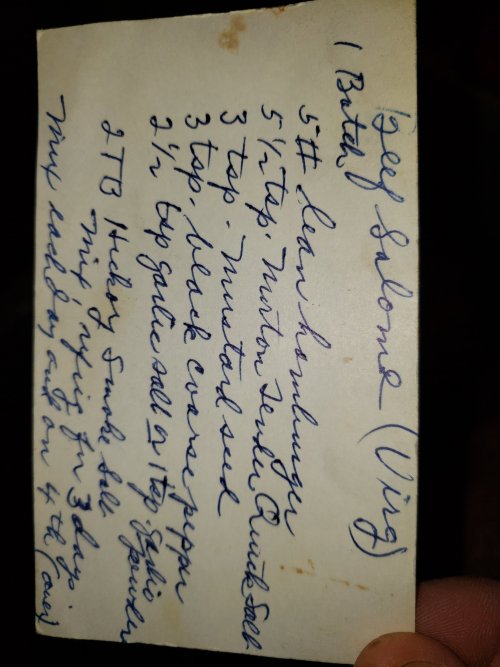 Beef Salome (Virg)
1 Batch
5# lean hamburger
5 1/2 tsp. Morton Tender Quick Salt
3 tsp. mustard seed
3 tsp. black coarse pepper
2 1/2 tsp garlic salt or 1 tsp. garlic powder
2 TB Hickory Smoke Salt
Mix, refrig for 3 days.
Mix each day and on 4th (over)